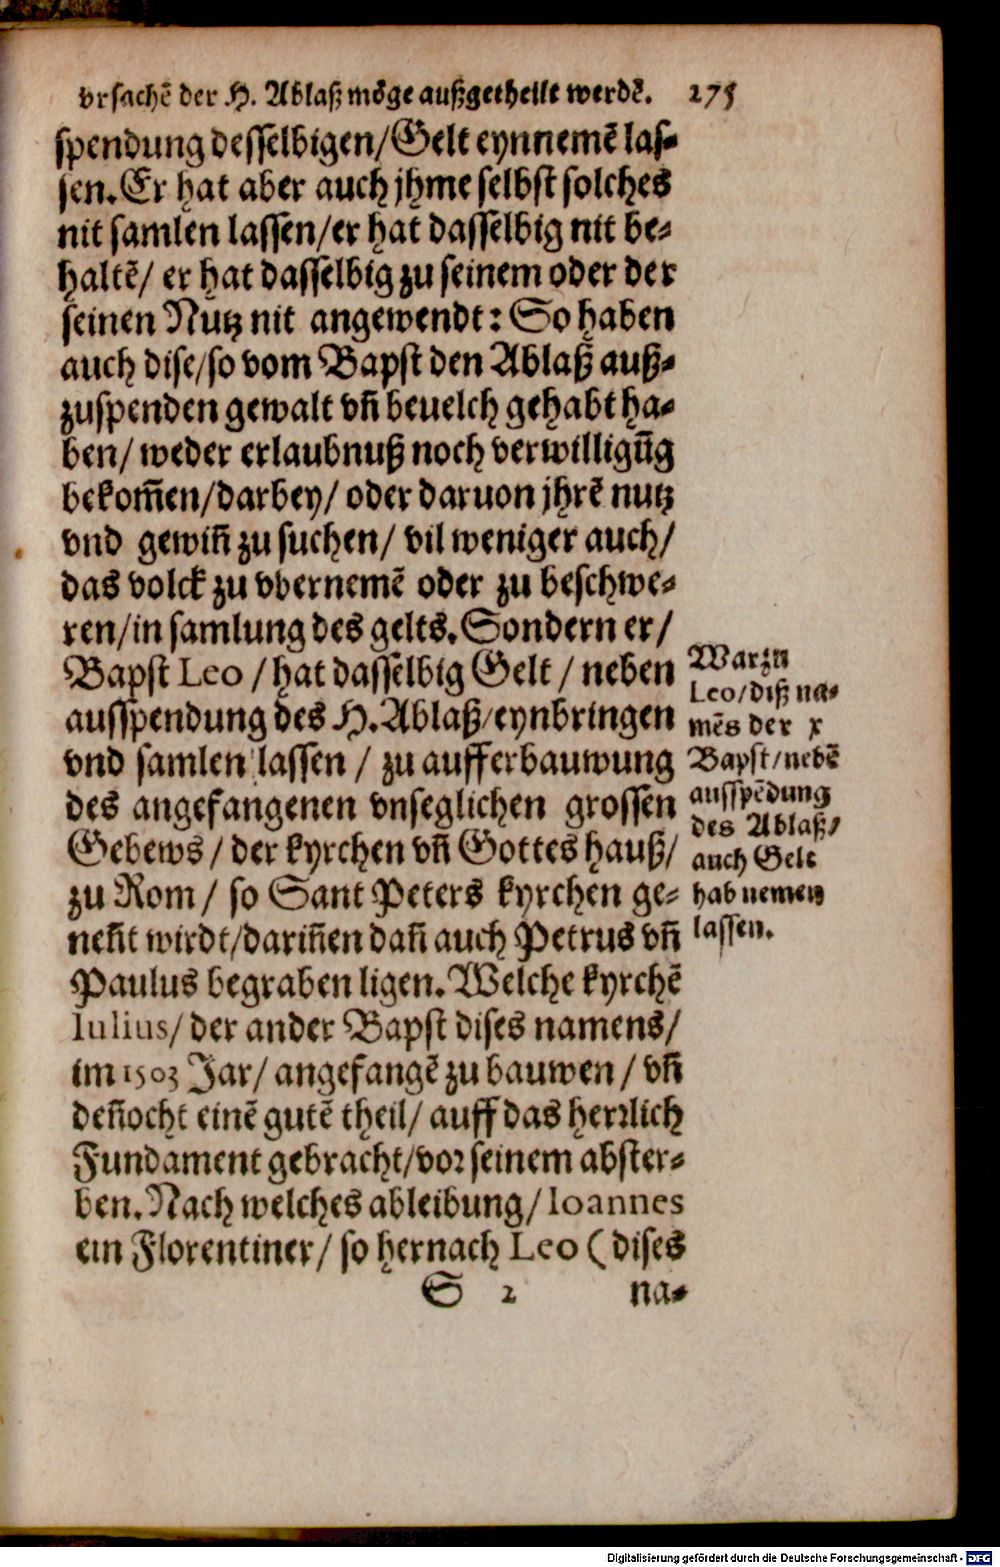 vrsachē der H. Ablaß möge außgetheilt werdē. 275
spendung desselbigen/Gelt eynnemē las-
sen. Er hat aber auch jhme selbst solches
nit samlen lassen/er hat dasselbig nit be-
haltē/ er hat dasselbig zu seinem oder der
seinen Nutz nit angewendt: So haben
auch dise/so vom Bapst den Ablaß auß-
zuspenden gewalt vñ beuelch gehabt ha-
ben/ weder erlaubnuß noch verwilligūg
bekom̃en/darbey/ oder daruon jhrē nutz
vnd gewiñ zu suchen/ vil weniger auch/
das volck zu vbernemē oder zu beschwe-
ren/in samlung des gelts. Sondern er/
Bapst Leo / hat dasselbig Gelt / neben
ausspendung des H. Ablaß/eynbringen
vnd samlen lassen / zu aufferbauwung
des angefangenen vnseglichen grossen
Gebews / der kyrchen vñ Gottes hauß/
zu Rom / so Sant Peters kyrchen ge-
neñt wirdt/dariñen dañ auch Petrus vñ
Paulus begraben ligen. Welche kyrchē
Iulius/ der ander Bapst dises namens/
im 1503 Jar/ angefangē zu bauwen / vñ
deñocht einē gutē theil/ auff das herrlich
Fundament gebracht/vor seinem abster-
ben. Nach welches ableibung/ Ioannes
ein Florentiner/ so hernach Leo (dises
S 2 na-
Warzu
Leo/diß na-
mēs der x
Bapst/nebē
ausspēdung
des Ablaß/
auch Gelt
hab nemen
lassen.
Digitalisierung gefördert durch die Deutsche Forschungsgemeinschaft - DFG